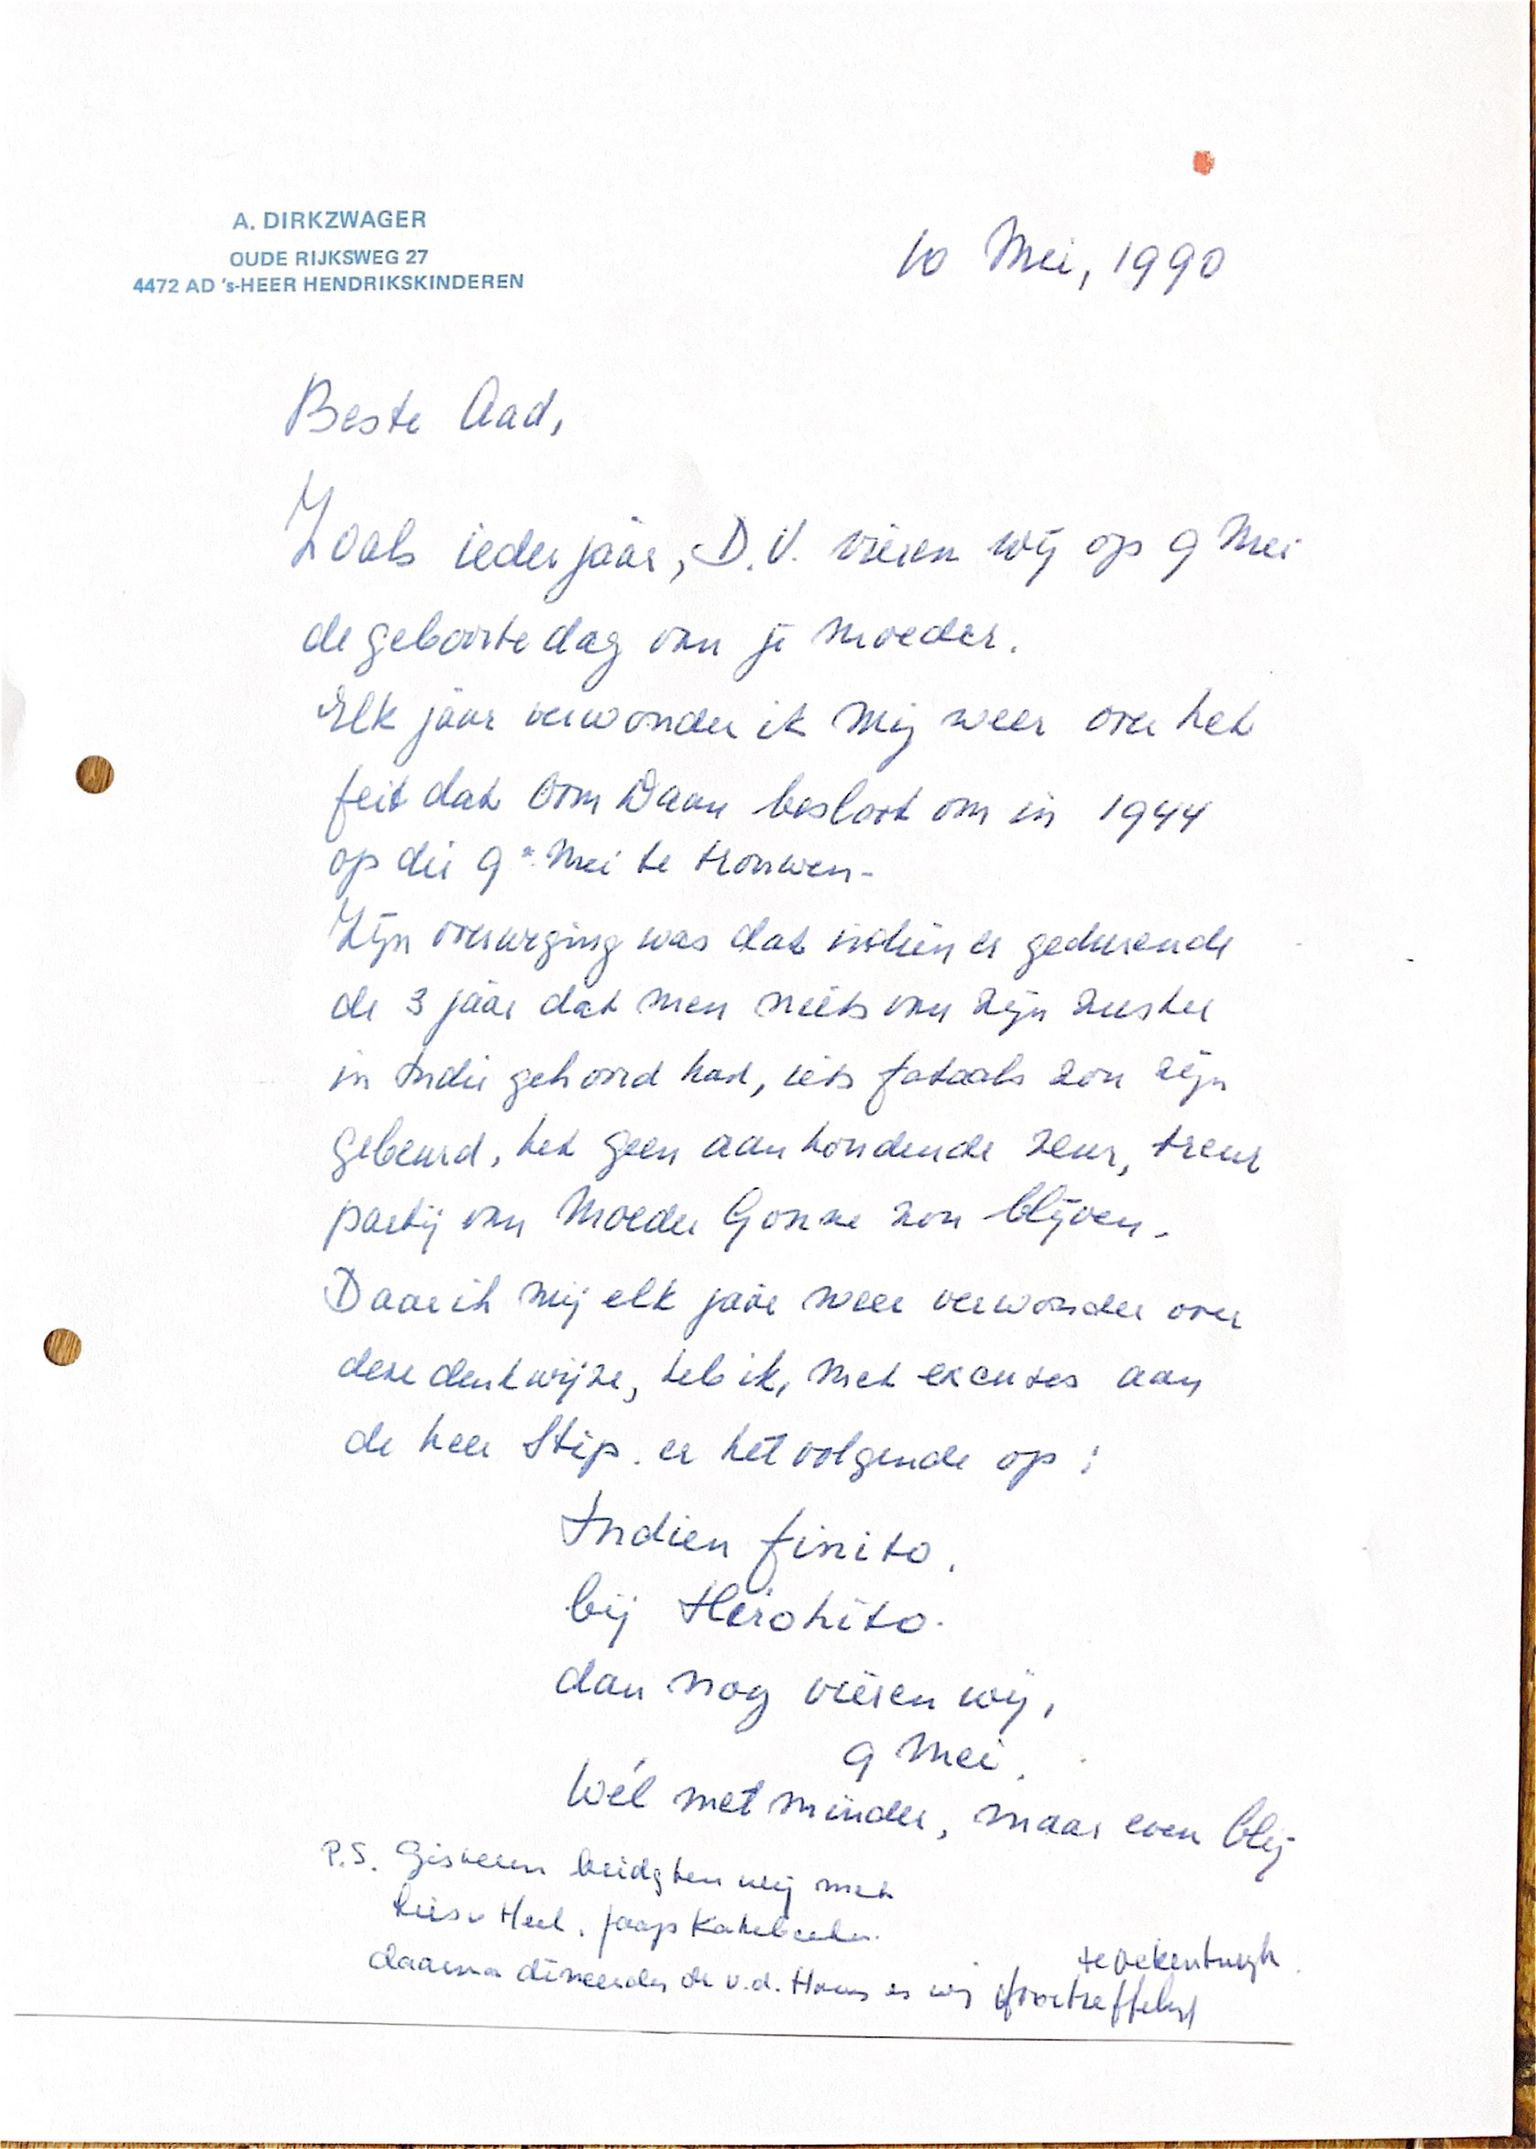 A. DIRKZWAGER
OUDE RIJKSWEG 27
4472 AD 's-HEER HENDRIKSKINDEREN
10 Mei, 1990
Beste Aad,
Zoals ieder jaar, D.V. vieren wij op 9 Mei
de geboortedag van je moeder.
Elk jaar verwonder ik mij weer over het
feit dat Oom Daan besloot om in 1944
op die 9e Mei te trouwen.
Zijn overweging was dat indien er gedurende
de 3 jaar dat men niets van zijn zuster
in Indië gehoord had, iets fataals zou zijn
gebeurd, het geen aanhoudende zeur, treur
partij van Moeder Gonne zou blijven.
Daar ik mij elk jaar weer verwonder over
deze denkwijze, heb ik, met excuses aan
de heer Stip. er het volgende op:
Indien finito.
bij Hirohito.
dan nog vieren wij,
9 Mei.
Wél met minder, maar even blij
P.S. Gisteren bridgten wij met
v Heel. Jaap
daarna dineerden de v.d. en wij voortreffelijk
te Ockenburgh.